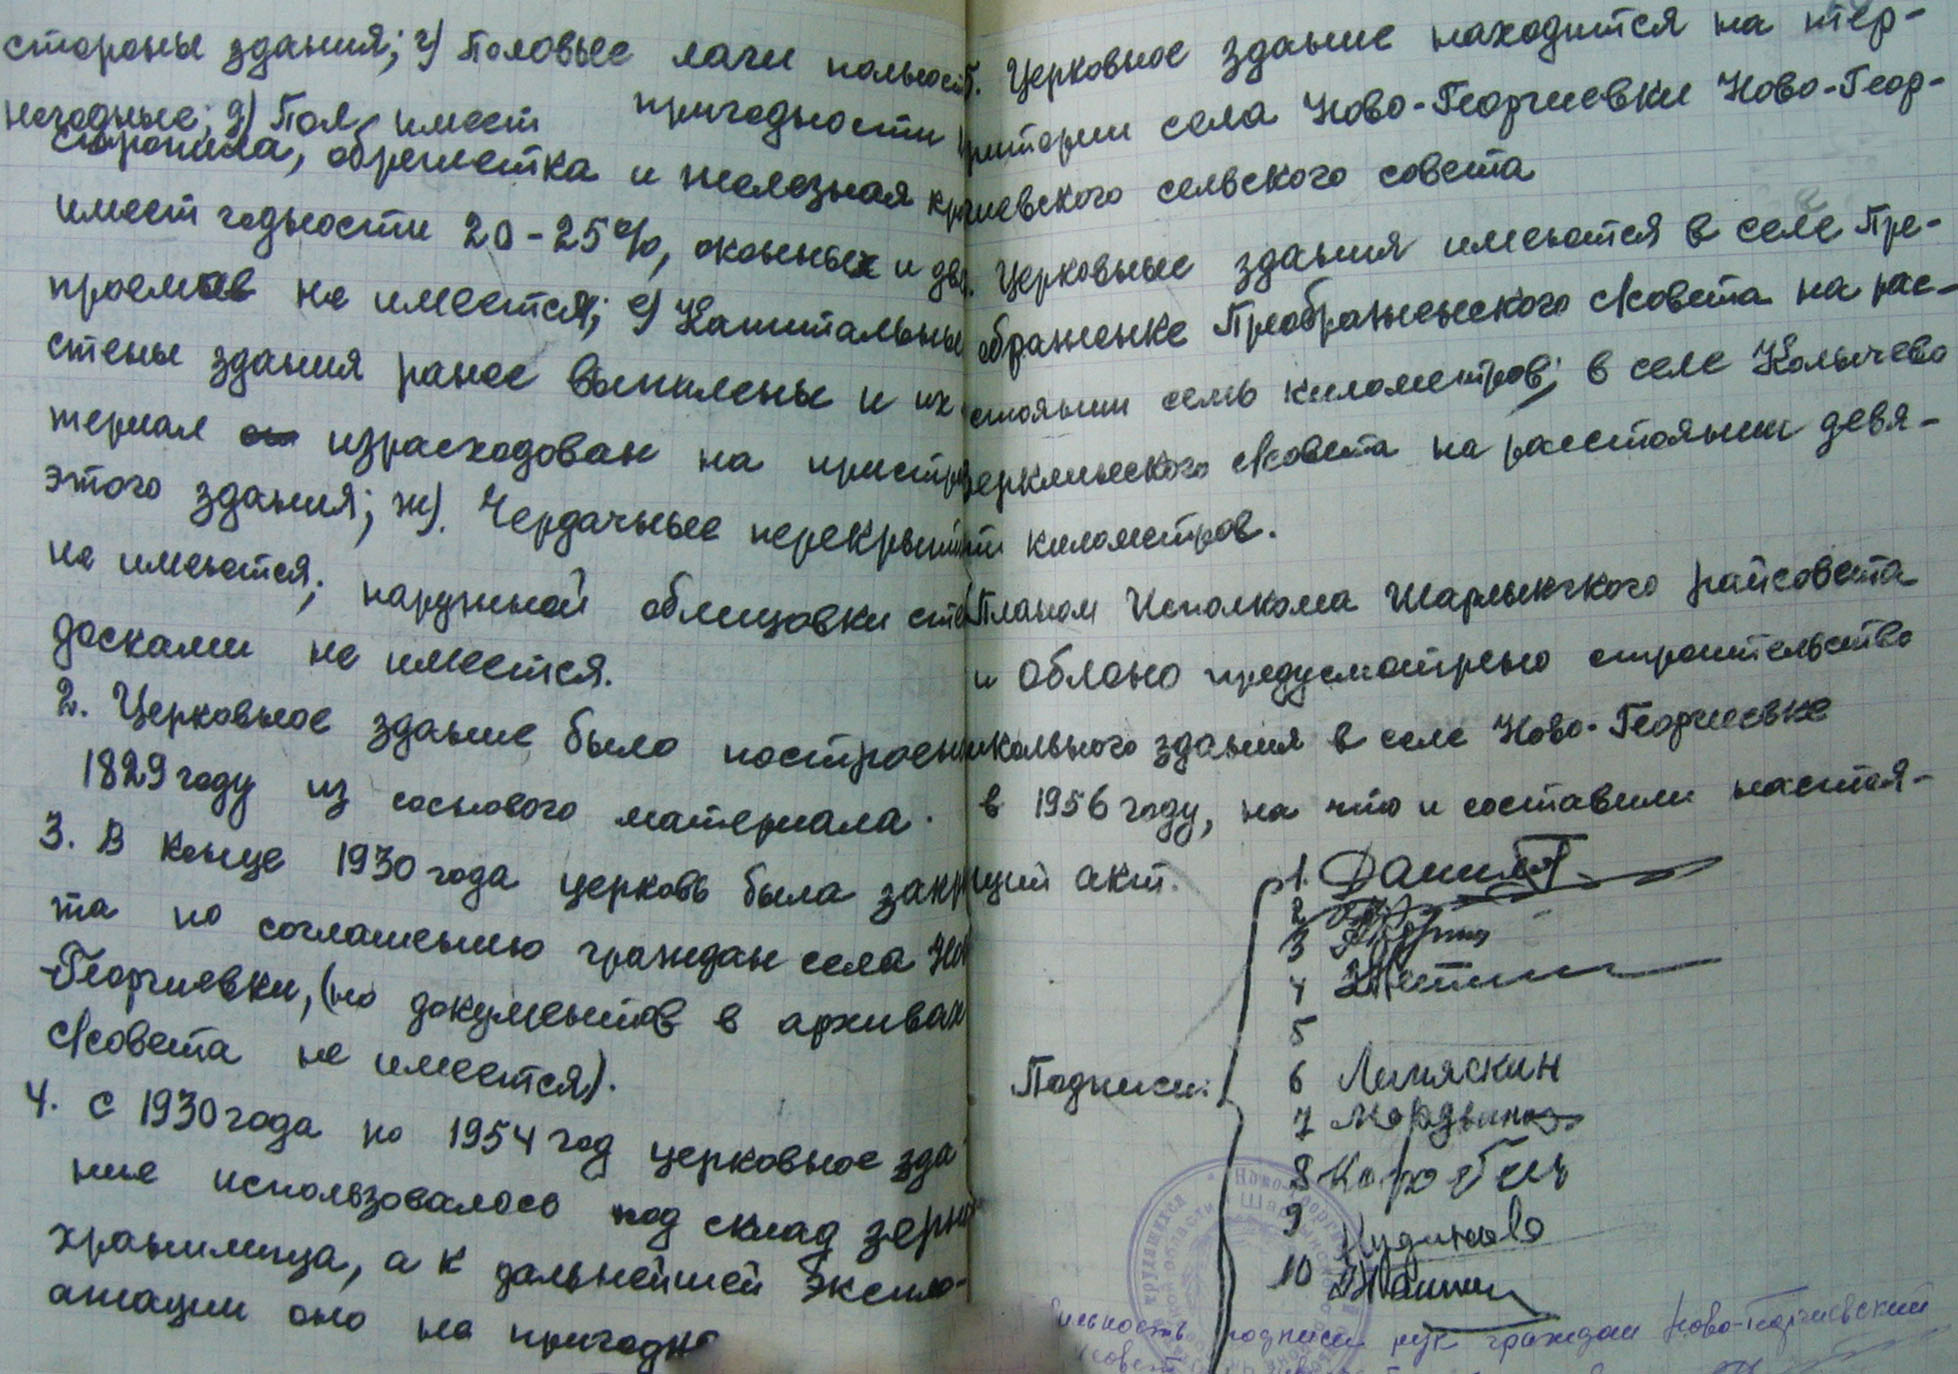 стороны здания; г) Половые лаги полност
негодные; д) Пол имеет пригодности
стропила, обрешетка и железная кр
имеет годности 20-25%, оконных и две
проемов не имеется; е) Капитальны
стены здания ранее выпилены и их
териал израсходован на пристр
этого здания; ж). Чердачные перекрыти
не имеются; наружной облицовки сте
досками не имеется.
2. Церковное здание было построен
1829 году из соснового материала.
3. В конце 1930 года церковь была закр
та по соглашению граждан села Ново
-Георгиевки, (но документов в архивах
с/совета не имеется).
4. С 1930 года по 1954 год церковное зда-
ние использовалось под склад зерно
хранилища, а к дальнейшей эксплo-
атации оно не пригодно
5. Церковное здание находится на тер-
ритории села Ново-Георгиевки Ново-Геор-
гиевского сельского совета
. Церковные здания имеются в селе Пре-
ображенке Преображенского с/совета на рас-
стоянии семь километров; в селе Колычево
с/совета на расстоянии девя-
ти километров.
Планом Исполкома Шарлыкского райсовета
и Облоно предусмотрено строительство
школьного здания в селе Ново-Георгиевке
в 1956 году, на что и составили настоя-
щий акт.
Подписи:
1.
2
3
4
5
6 Липяскин
7 Мордвинов
8 Коробен
9 Кудинова
10
подписи рук граждан Ново-Георгиевский